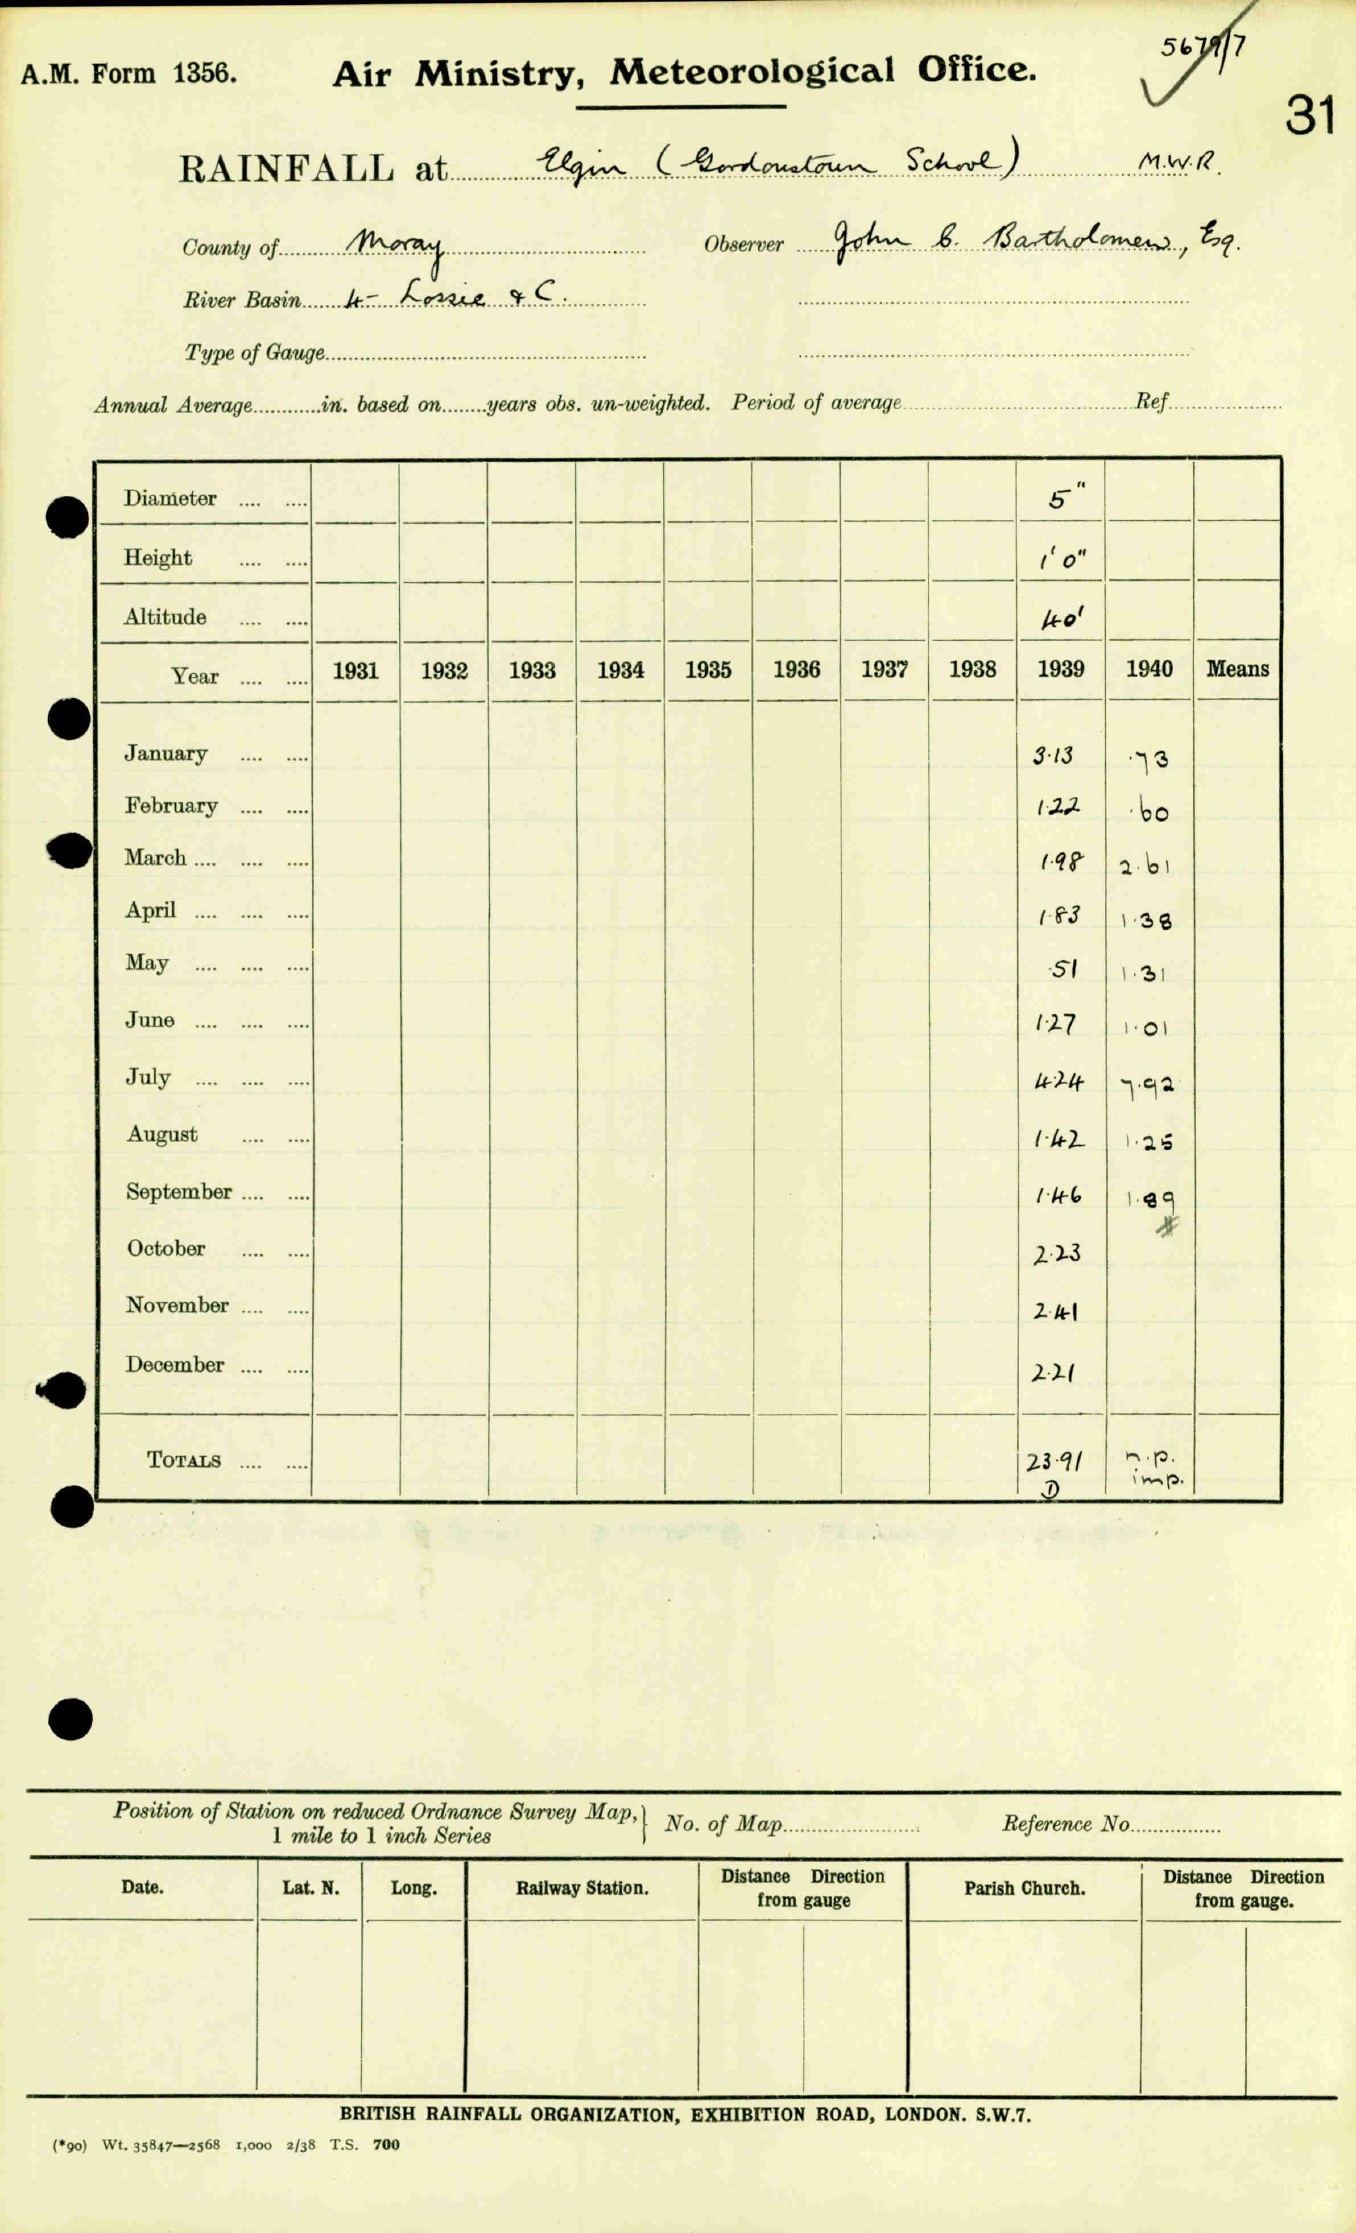 5679/7
A.M. Form 1356. Air Ministry, Meteorological Office.
31
RAINFALL at Elgin (Gordonstoun School) M.W.R.
County of Moray Observer John C. Bartholomew, Esq.
River Basin 4- Lossie & C.
Type of Gauge
Annual Average in. based on years obs. un-weighted. Period of average Ref
Diameter 5"
Height 1' 0"
Altitude 40'
Year 1931 1932 1933 1934 1935 1936 1937 1938 1939 1940 Means
January 3.13 .73
February 1.22 .60
March 1.98 2.61
April 1.83 1.38
May .51 1.31
June 1.27 1.01
July 4.24 7.92
August 1.42 1.25
September 1.46 1.89
#
October 2.23
November 2.41
December 2.21
TOTALS 23.91 n.p.
D imp.
Position of Station on reduced Ordnance Survey Map, } No. of Map Reference No
1 mile to 1 inch Series
Date. Lat. N. Long. Railway Station. Distance Direction from gauge Parish Church. Distance Direction from gauge.
BRITISH RAINFALL ORGANIZATION, EXHIBITION ROAD, LONDON. S.W.7.
(*90) Wt. 35847—2568 1,000 2/38 T.S. 700